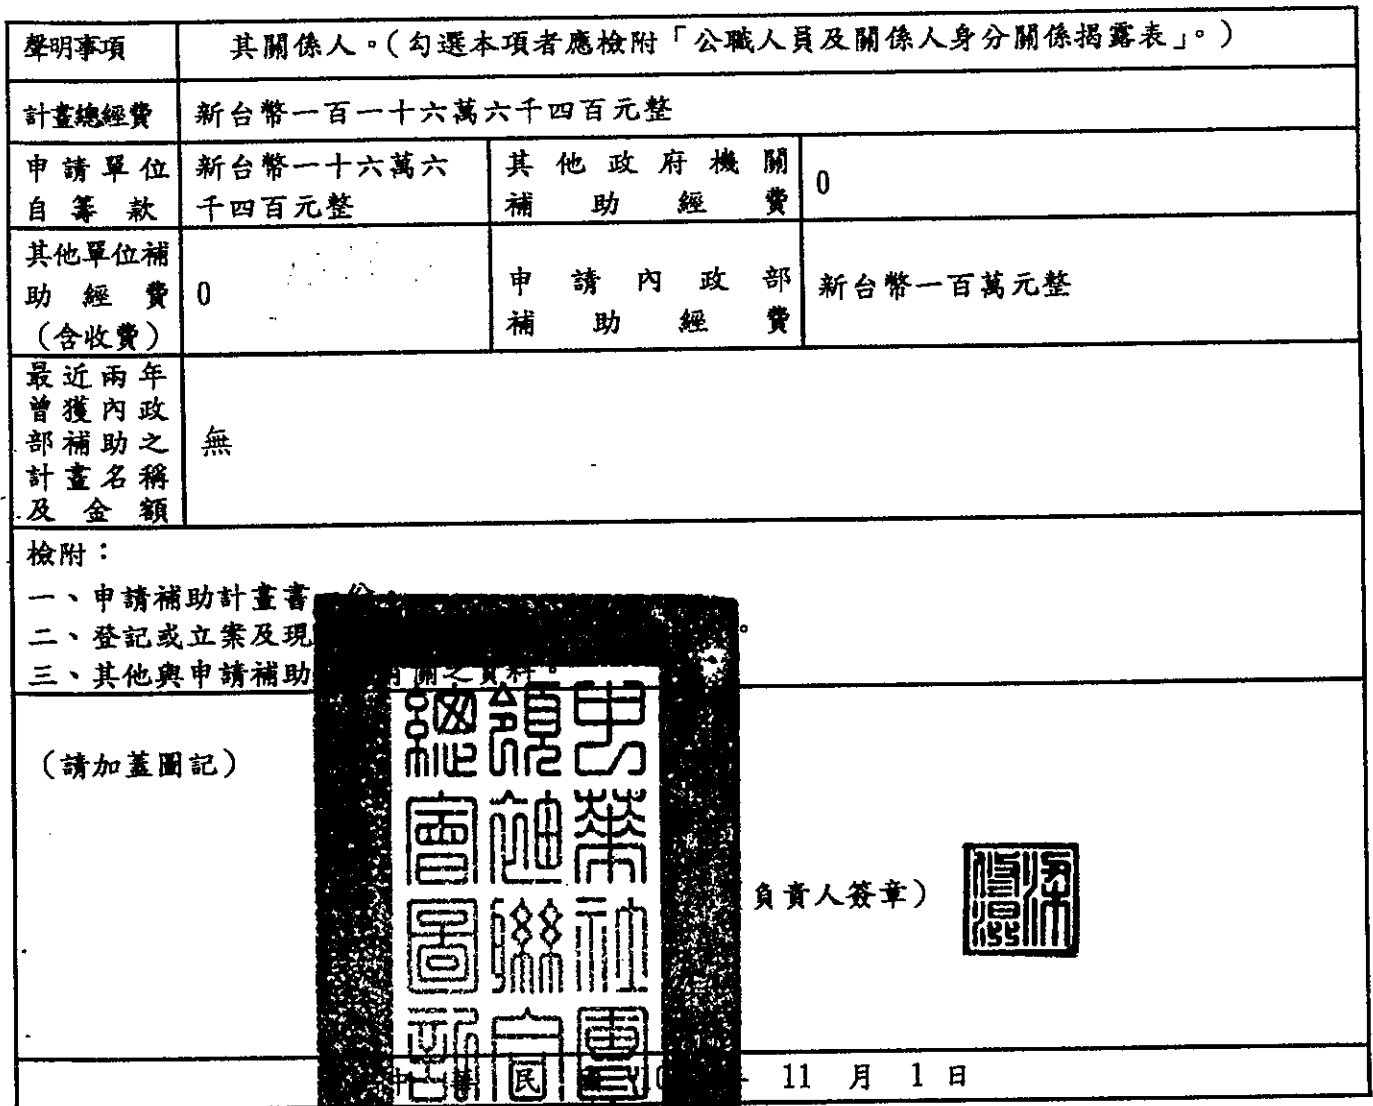 聲明事項
其關係人。(勾選本項者應檢附「公職人員及關係人身分關係揭露表」。)
計畫總經費
新台幣一百一十六萬六千四百元整
申請單位
自籌款
新台幣一十六萬六
千四百元整
其他政府機關
補助經費
0
其他單位補
助經費
(含收費)
0
申請內政部
補助經費
新台幣一百萬元整
最近兩年
曾獲內政
部補助之
計畫名稱
及金額
無
檢附:
一、申請補助計畫書 份。
二、登記或立案及現 。
三、其他與申請補助 有關之資料。
(請加蓋圖記)
負責人簽章)
中華民 11 月 1 日